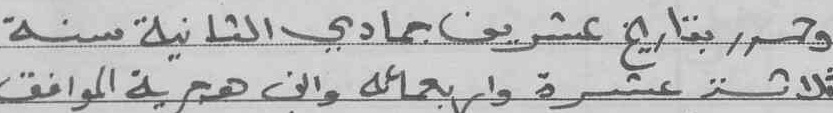 وحرر بتاريخ عشرين جمادي الثانية سنة
ثلاثة عشرة واربعمائه والف هجرية الموافق